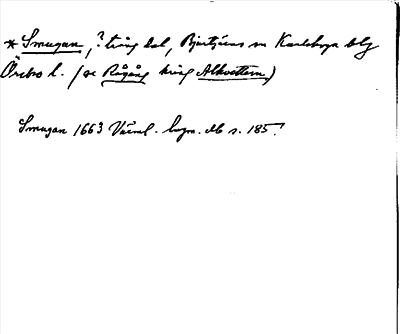 * Smugan, ? trång dal, Bjurtjärns sn Karlskoga blg
Örebro l. (se Rågång kring Alkvettern)
Smugan 1663 Värml. . . s. 185.